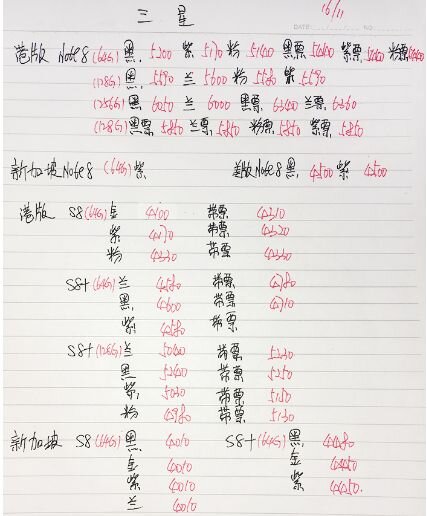 三星 16/11
DATE: NO.
港版 Note8 (64G) 黑 5200 紫 5170 粉 5140 黑票 紫票 粉票
(128G) 黑 5590 兰 5600 粉 5580 紫 5590
(256G) 黑 6050 兰 6000 黑票 6340 兰票 6360
(128G) 黑票 5850 兰票 5850 粉票 5850 紫票 5850
新加坡 Note8 (64G) 紫 美版 Note8 黑 4500 紫 4500
港版 S8 (64G) 金 4100 带票 4310
紫 4170 带票 4320
粉 4330 带票 4330
S8+ (64G) 兰 4580 带票 4780
黑 4600 带票 4710
紫 4580 带票
S8+ (128G) 兰 5040 带票 5230
黑 带票 5250
紫 5030 带票 5150
粉 4980 带票 5130
新加坡 S8 (64G) 黑 4010 S8+ (64G) 黑 4480
金 4010 金 4450
紫 4010 紫 4450
兰 4010